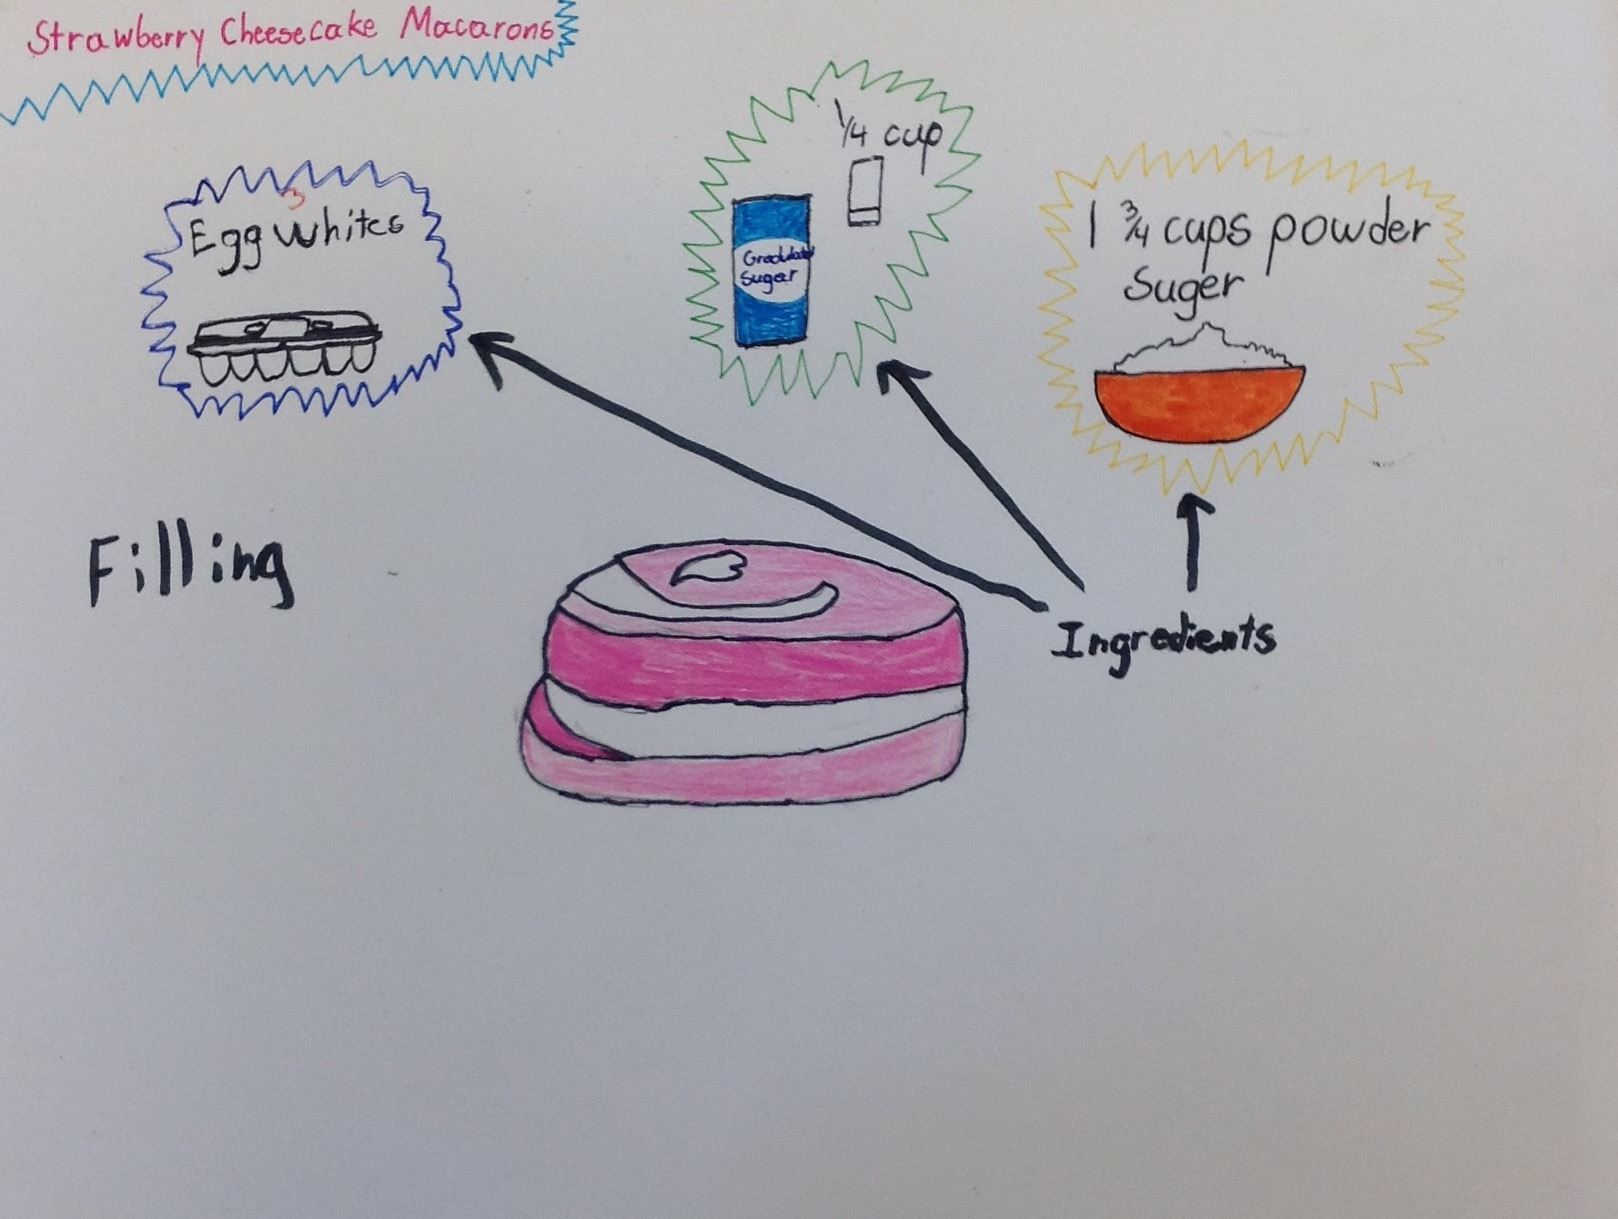 Strawberry Cheesecake Macarons
3
Egg Whites
1/4 cup
Gradulated
Sugar
1 3/4 cups powder
Suger
Filling
Ingredients